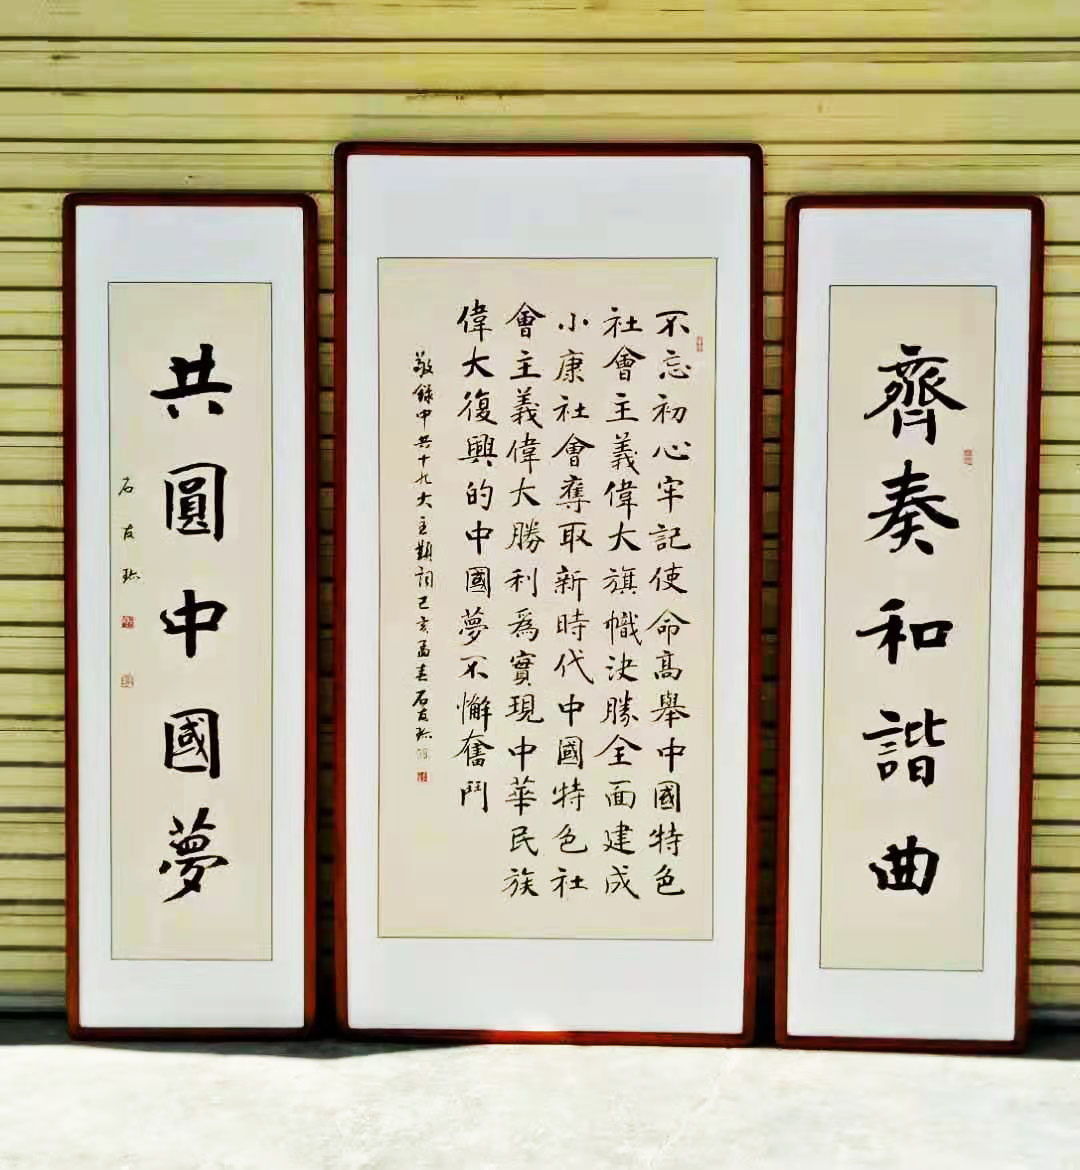 齊奏和諧曲
不忘初心牢記使命高舉中國特色
社會主義偉大旗幟決勝全面建成
小康社會奪取新時代中國特色社
會主義偉大勝利爲實現中華民族
偉大復興的中國夢不懈奮鬥
敬錄中共十九大主題詞己亥春石友
共圓中國夢
石友